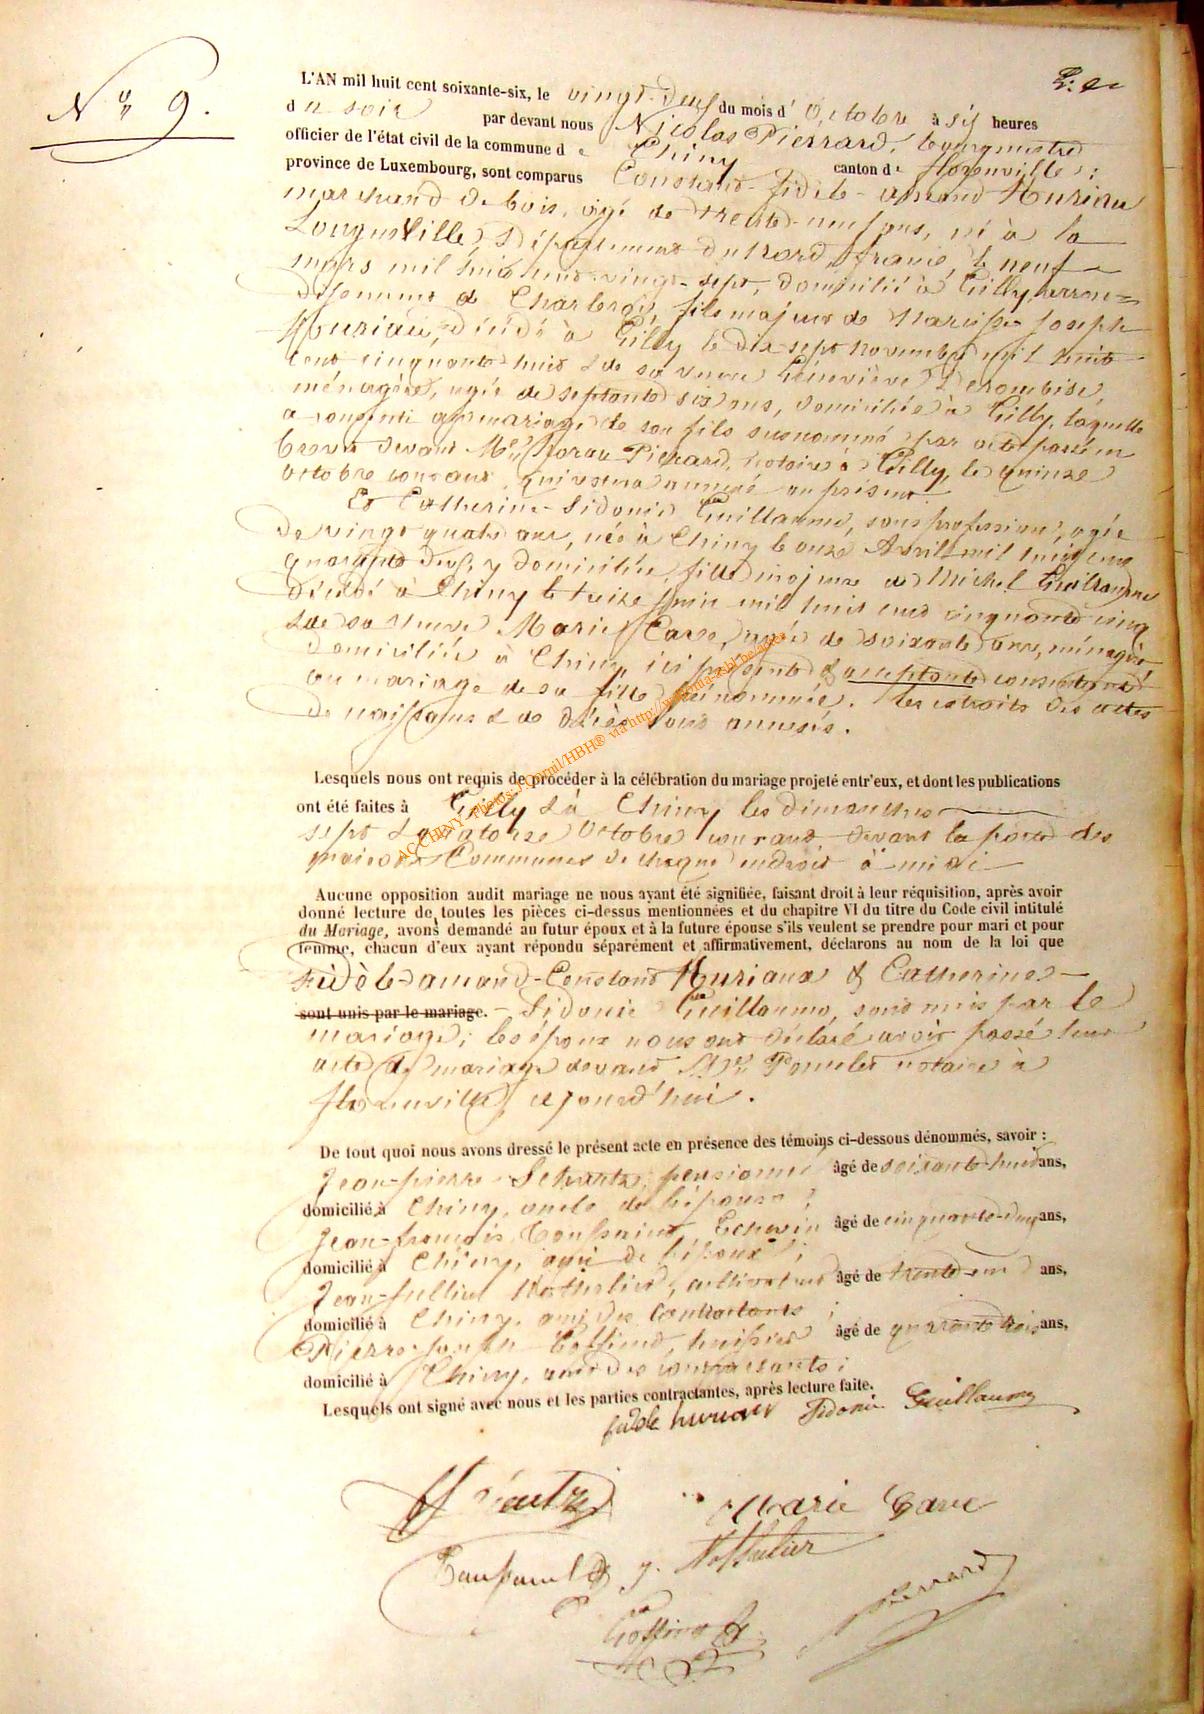 N° 9.
L'AN mil huit cent soixante-six, le vingt-deux du mois d'Octobre à six heures
du soir par devant nous Nicolas Pierrard, bourgmestre
officier de l'état civil de la commune de Chiny canton de florenville
province de Luxembourg, sont comparus Constand-fidele-amand Huriau
marchand de bois, agé de trente-neuf ans, né à la
Longueville, Département du Nord, france, le neuf
mars mil huit cent vingt-sept, domicilié à Gilly, arron=
dissement de Charleroi, fils majeur de Narcisse Joseph
Huriau, décédé à Gilly le dix sept novembre mil huit
cent cinquante-huit & de sa veuve Géneviève
ménagère, agée de septante six ans, domiciliée à Gilly, laquelle
a consenti au mariage de son fils susnommé par acte passé en
brevet devant Mtre Pierard, notaire à Gilly, le quinze
octobre courant, qui restera annexé au présent
Et Catherine-Sidonie Guillaume, sans profession, agée
de vingt quatre ans, née à Chiny le onze Avril mil huit cent
quarante deux, y domiciliée, fille majeure de Michel Guillaume
décédé à Chiny le treize juin mil huit cent cinquante cinq
& de sa veuve Marie Cave, agée de soixante ans, ménagère
domiciliée à Chiny, ici présente & acceptante consentante
au mariage de sa fille dénommée. les extraits des actes
de naissance & de décès sont annexés.
Lesquels nous ont requis de procéder à la célébration du mariage projeté entr'eux, et dont les publications
ont été faites à Gilly & à Chiny les dimanches
sept & quatorze Octobre courant devant la porte des
maisons Communes de chaque endroit à midi
Aucune opposition audit mariage ne nous ayant été signifiée, faisant droit à leur réquisition, après avoir
donné lecture de toutes les pièces ci-dessus mentionnées et du chapitre VI du titre du Code civil intitulé
du Mariage, avons demandé au futur époux et à la future épouse s'ils veulent se prendre pour mari et pour
femme, chacun d'eux ayant répondu séparément et affirmativement, déclarons au nom de la loi que
Fidèle-amand-Constand Huriaux & Catherine-
sont unis par le mariage. - Sidonie Guillaume, sont unis par le
mariage; les époux nous ont déclaré avoir passé leur
acte de mariage devant Mtre Poncelet notaire à
florenville, ce jourd'hui.
De tout quoi nous avons dressé le présent acte en présence des témoins ci-dessous dénommés, savoir :
Jean-pierre Schantz, pensionné âgé de soixante-huit ans,
domicilié à Chiny, oncle de l'épouse;
Jean-françois Toussaint Echevin âgé de cinquante-cinq ans,
domicilié à Chiny, ami de l'époux;
Jean-Jullien Nothelier, cultivateur âgé de trente-un ans,
domicilié à Chiny, ami des Contractants;
Pierre-Joseph Goffinet, huissier âgé de quarante trois ans,
domicilié à Chiny, ami des contractants;
Lesquels ont signé avec nous et les parties contractantes, après lecture faite.
fidele huriaux Sidonie Guillaume
Marie Cave
J. Nothelier
Pierrard
Goffinet
ACCHINY Photos: J.Cornil/HBH® via http://